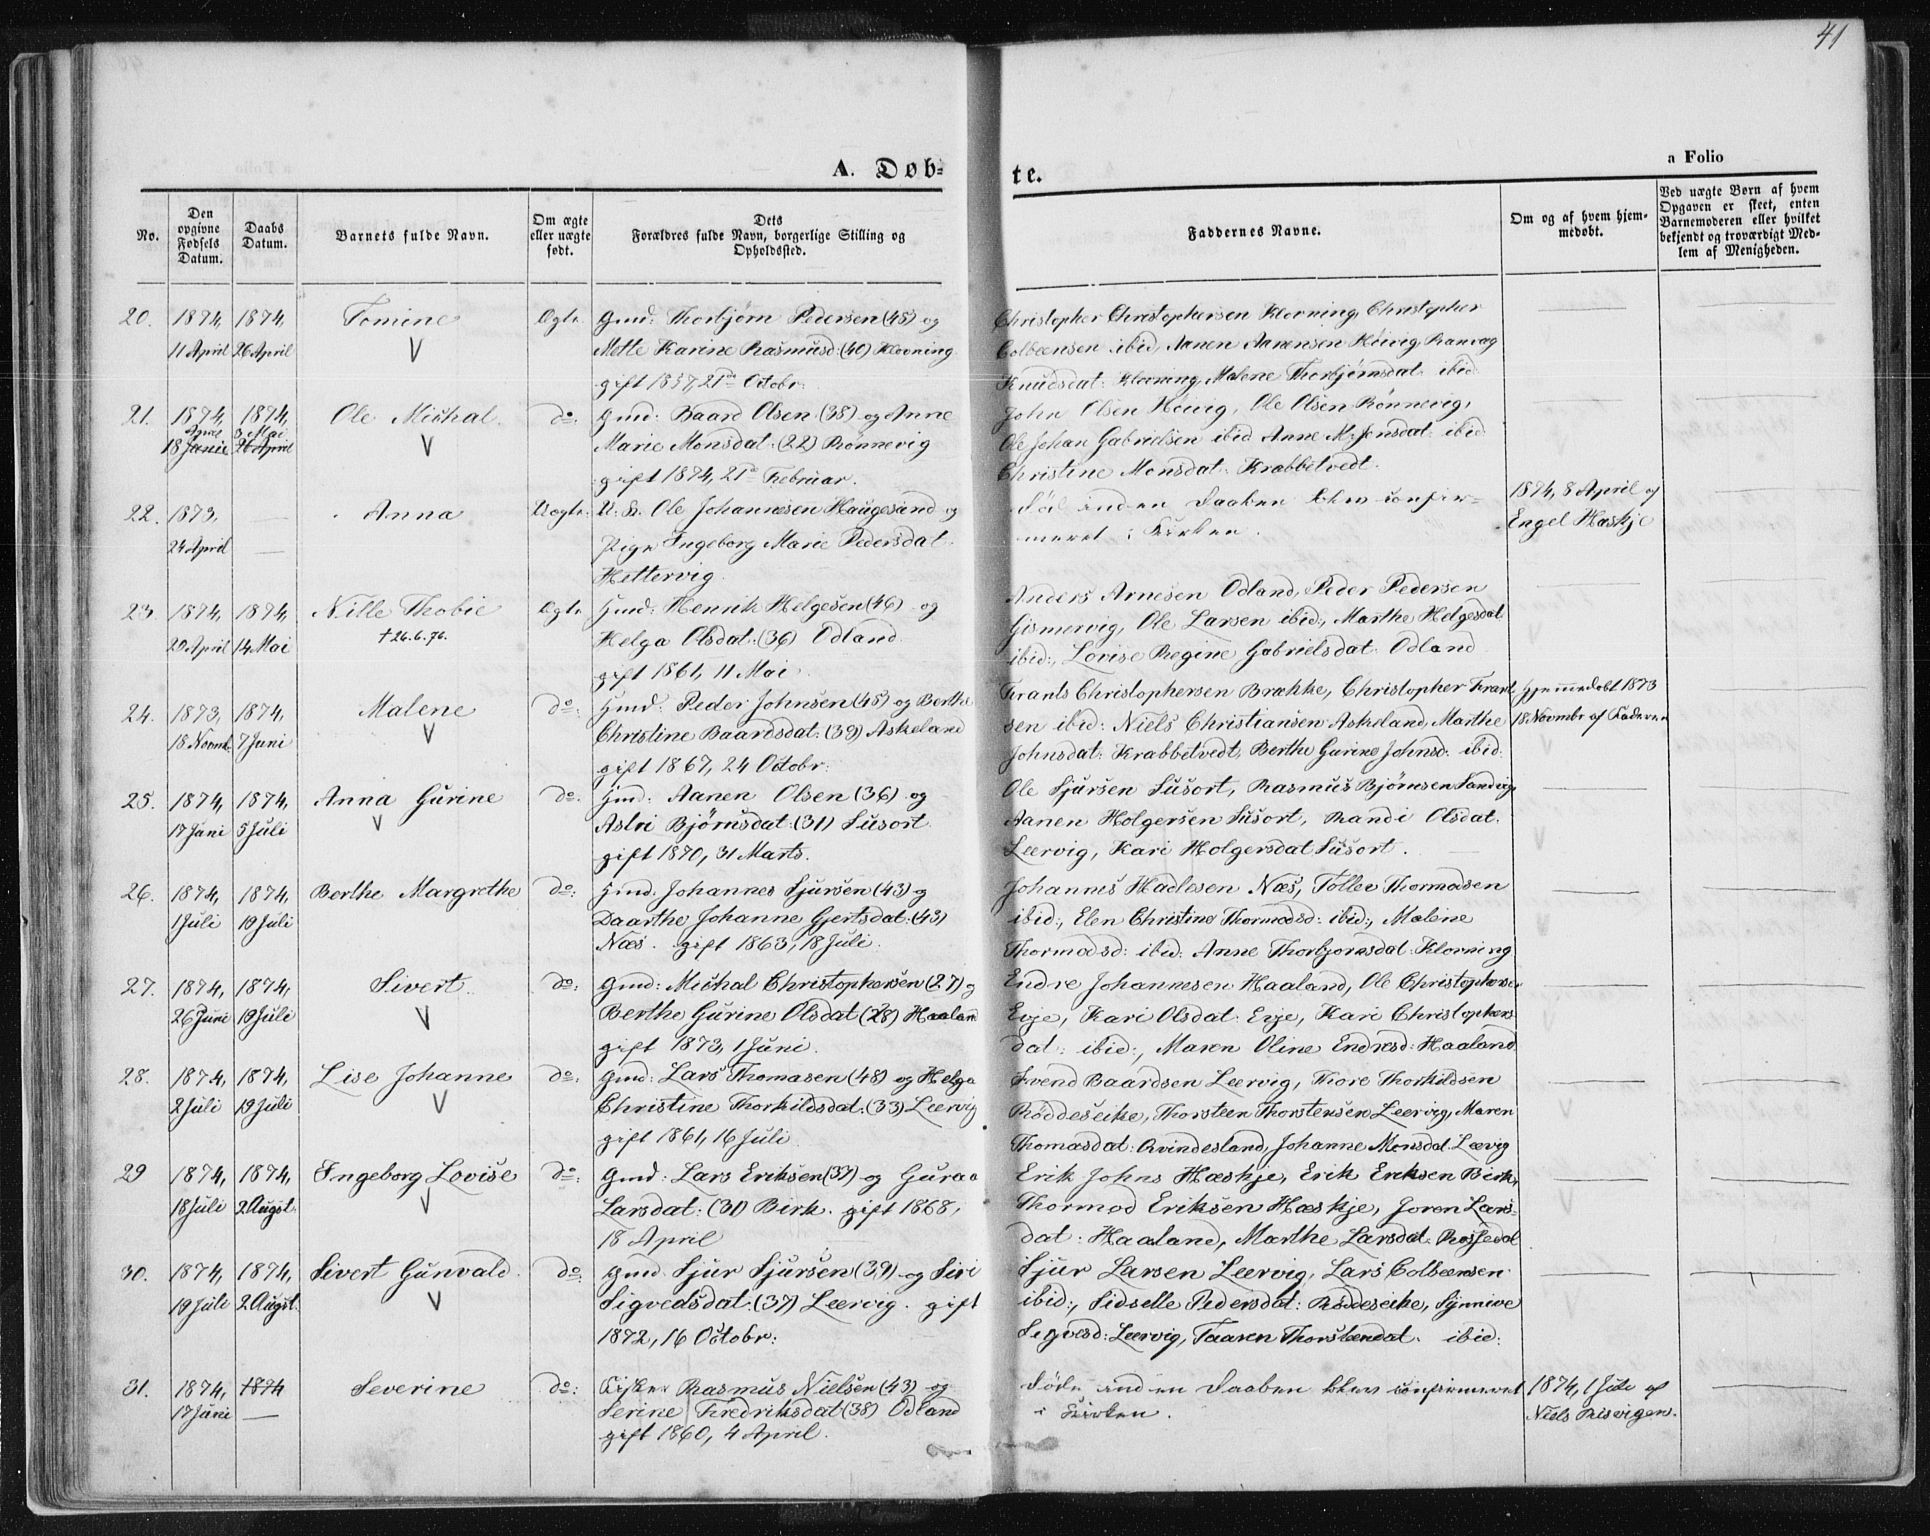 41
A. Døb-
te.
a Folio
No.
Den opgivne Fødsels Datum.
Daabs Datum.
Barnets fulde Navn.
Om ægte eller uægte født.
Dets Forældres fulde Navn, borgerlige Stilling og Opholdssted.
Faddernes Navne.
Om og af hvem hjemmedøbt.
Ved uægte Børn af hvem Opgaven er skeet, enten Barnemoderen eller hvilket bekjendt og troværdigt Medlem af Menigheden.
20. 1874, 1874, Tomine Ægte Gmd: Thorbjørn Pedersen (45) og
11 April 26 April V Mette Karine Rasmusd: (40) Klovning
gift 1857 21de Octobr:
Christopher Christophersen Klovning, Christopher
Colbeensen ibid, Aanen Aanensen Høivig Ranvag
Knudsdat: Klovning, Malene Thorbjørnsdat: ibid
21. 1874, 1874, Ole Michal do: Gmd: Baard Olsen (38) og Anne
April 3 Mai
18 Junie 26 April V Marie Monsdat: (22) Rønnevig
gift 1874, 21de Februar.
John Olsen Høivig, Ole Olsen Rønnevig,
Ole Johan Gabrielsen ibid Anne M. Jonsdat: ibid
Christine Monsdat: Krabbetvedt.
22. 1873, — Anna Uægte. U. K. Ole Johannesen Haugesand og
24 April — Pige Ingeborg Marie Pedersdat.
Hettervig.
Død inden Daaben blev confir-
meret i Kirken.
1874, 8 April af
Engel Hæskje
23. 1874, 1874, Nille Thobie Ægte Hmd: Henrik Helgesen (46) og
20 April 14 Mai †26.6.76. Helga Olsdat: (36) Odland.
gift 1861, 11 Mai
Anders Arnesen Odland, Peder Pedersen
Gismervig, Ole Larsen ibid:, Marthe Helgesdat
ibid:, Lovise Regine Gabrielsdat: Odland
24. 1873, 1874, Malene do: Hmd: Peder Johnsen (45) og Berthe
18 Novmb. 7 Juni V Christine Baardsdat: (39) Askeland
gift 1867, 24 Octobr:
Frants Christophersen Brække, Christopher Frant
sen ibid: Niels Christiansen Askeland, Marthe
Johnsdat: Krabbetvedt, Berthe Gurine Johnsd: ibid:
Hjemmedøbt 1873
18 Novmbr af Faderen
25. 1874, 1874, Anna Gurine do: Hmd: Aanen Olsen (36) og
17 Juni 5 Juli V Astri Bjørnsdat: (31) Susort.
gift 1870, 31 Marts.
Ole Sjursen Susort, Rasmus Bjørnsen Sandvig
Aanen Holgersen Susort, Randi Olsdat.
Leervig, Kari Holgersdat Susort.
26. 1874, 1874, Berthe Margrethe do: Hmd: Johannes Sjursen (43) og
1 Juli 19 Juli Daarthe Johanne Gjertsdat: (43)
Næs. gift 1863, 18 Juli.
Johannes Hadlesen Næs, Tollev Thormodsen
ibid:, Elen Christine Thormodsd: ibid:, Malene
Thormodsd: ibid: Anne Thorbjornsdat: Klovning
27. 1874, 1874, Sivert. do: Gmd: Michal Christophersen (27) og
26 Juni 19 Juli V Berthe Gurine Olsdat (28) Haaland
gift 1873, 1 Juni.
Endre Johannesen Haaland, Ole Christophersen
Evje, Kari Olsdat: Evje, Kari Christophers
dat: ibid:, Maren Oline Endresd: Haaland
28. 1874, 1874, Lise Johanne do: Gmd: Lars Thomasen (48) og Helga
2 Juli 19 Juli V Christine Thorkildsdat: (33) Leervig
gift 1861, 16 Juli
Svend Baardsen Leervig, Thore Thorkildsen
Røddeseike, Thorsteen Thorstensen Leervig, Maren
Thomasdat: Qvindesland, Johanne Monsdat. Leervig
29 1874, 1874, Ingeborg Lovise do: Gmd: Lars Eriksen (37) og Guraa
18 Juli 2 Augst. V Larsdat: (31) Birk. gift 1868,
18 April
Erik Johns Hæskje, Erik Eriksen Birk,
Thormod Eriksen Hæskje, Joren Lars-
dat: Haaland, Marthe Larsdat: Rossedal
30. 1874, 1874, Sivert Gunvald do: Gmd: Sjur Sjursen (39) og Siri
19 Juli 2 Augst. V Sigvedsdat: (37) Leervig. gift
1872, 16 Octobr:
Sjur Larsen Leervig, Lars Colbeensen
ibid:, Sidselle Pedersdat: Røddeseike, Synnive
Segvesd: Leervig, Taaren Thorstendat: ibid:
31. 1874, 1874 Severine do: Fisker Rasmus Nielsen (43) og
17 Juni — Serine Fredriksdat (38) Odland
gift 1860, 4 April.
Døde inden Daaben blev confirmeret
i Kirken.
1874, 1 Juli af
Niels Risvigen.